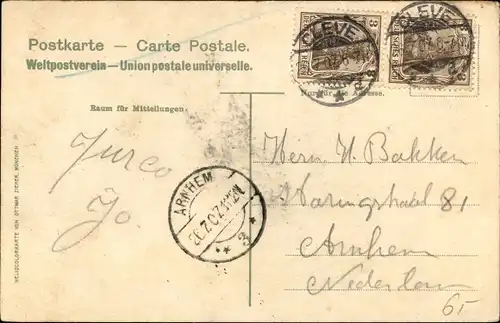 Postkarte — Carte Postale.
Weltpostverein — Union postale universelle.
CLEVE
CLEVE
3
3
DEUTSCHES REICH
Nur für die Adresse.
Raum für Mitteilungen.
ARNHEM
3
Herrn H. Bakken
81
Arnhem
Nederland
65
HELIOCOLORKARTE VON OTTMAR ZIEHER, MÜNCHEN